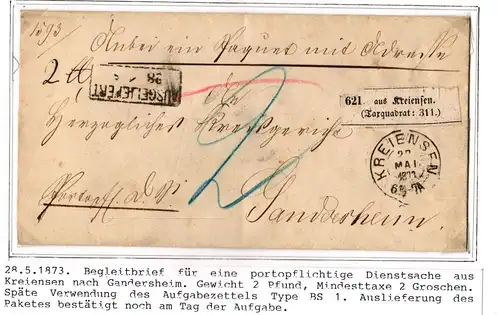 1593
Anbei ein Paquet mit Adresse
2 ℔
AUSGELIEFERT
28 5
An
621. aus Kreiensen.
(Taxquadrat: 311.)
Herzogliches Kreisgericht
2
KREIENSEN
MAI
1873
Portopfl. D. S.
Gandersheim.
28.5.1873. Begleitbrief für eine portopflichtige Dienstsache aus
Kreiensen nach Gandersheim. Gewicht 2 Pfund, Mindesttaxe 2 Groschen.
Späte Verwendung des Aufgabezettels Type BS 1. Auslieferung des
Paketes bestätigt noch am Tag der Aufgabe.